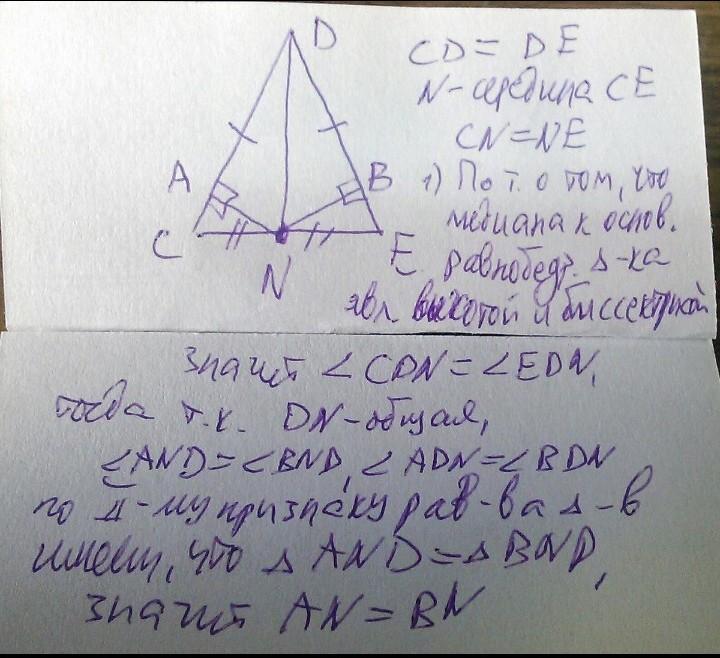 D
A
B
C
N
E
CD = DE
N-середина CE
CN=NE
1) По т. о том, что
медиана к основ.
равнобедр. Δ-ка
явл высотой и биссектрисой
значит ∠CDN=∠EDN,
тогда т.к. DN-общая,
∠AND=∠BND, ∠ADN=∠BDN
по II-му признаку рав-ва Δ-в
имеем, что Δ AND=Δ BND,
значит AN=BN